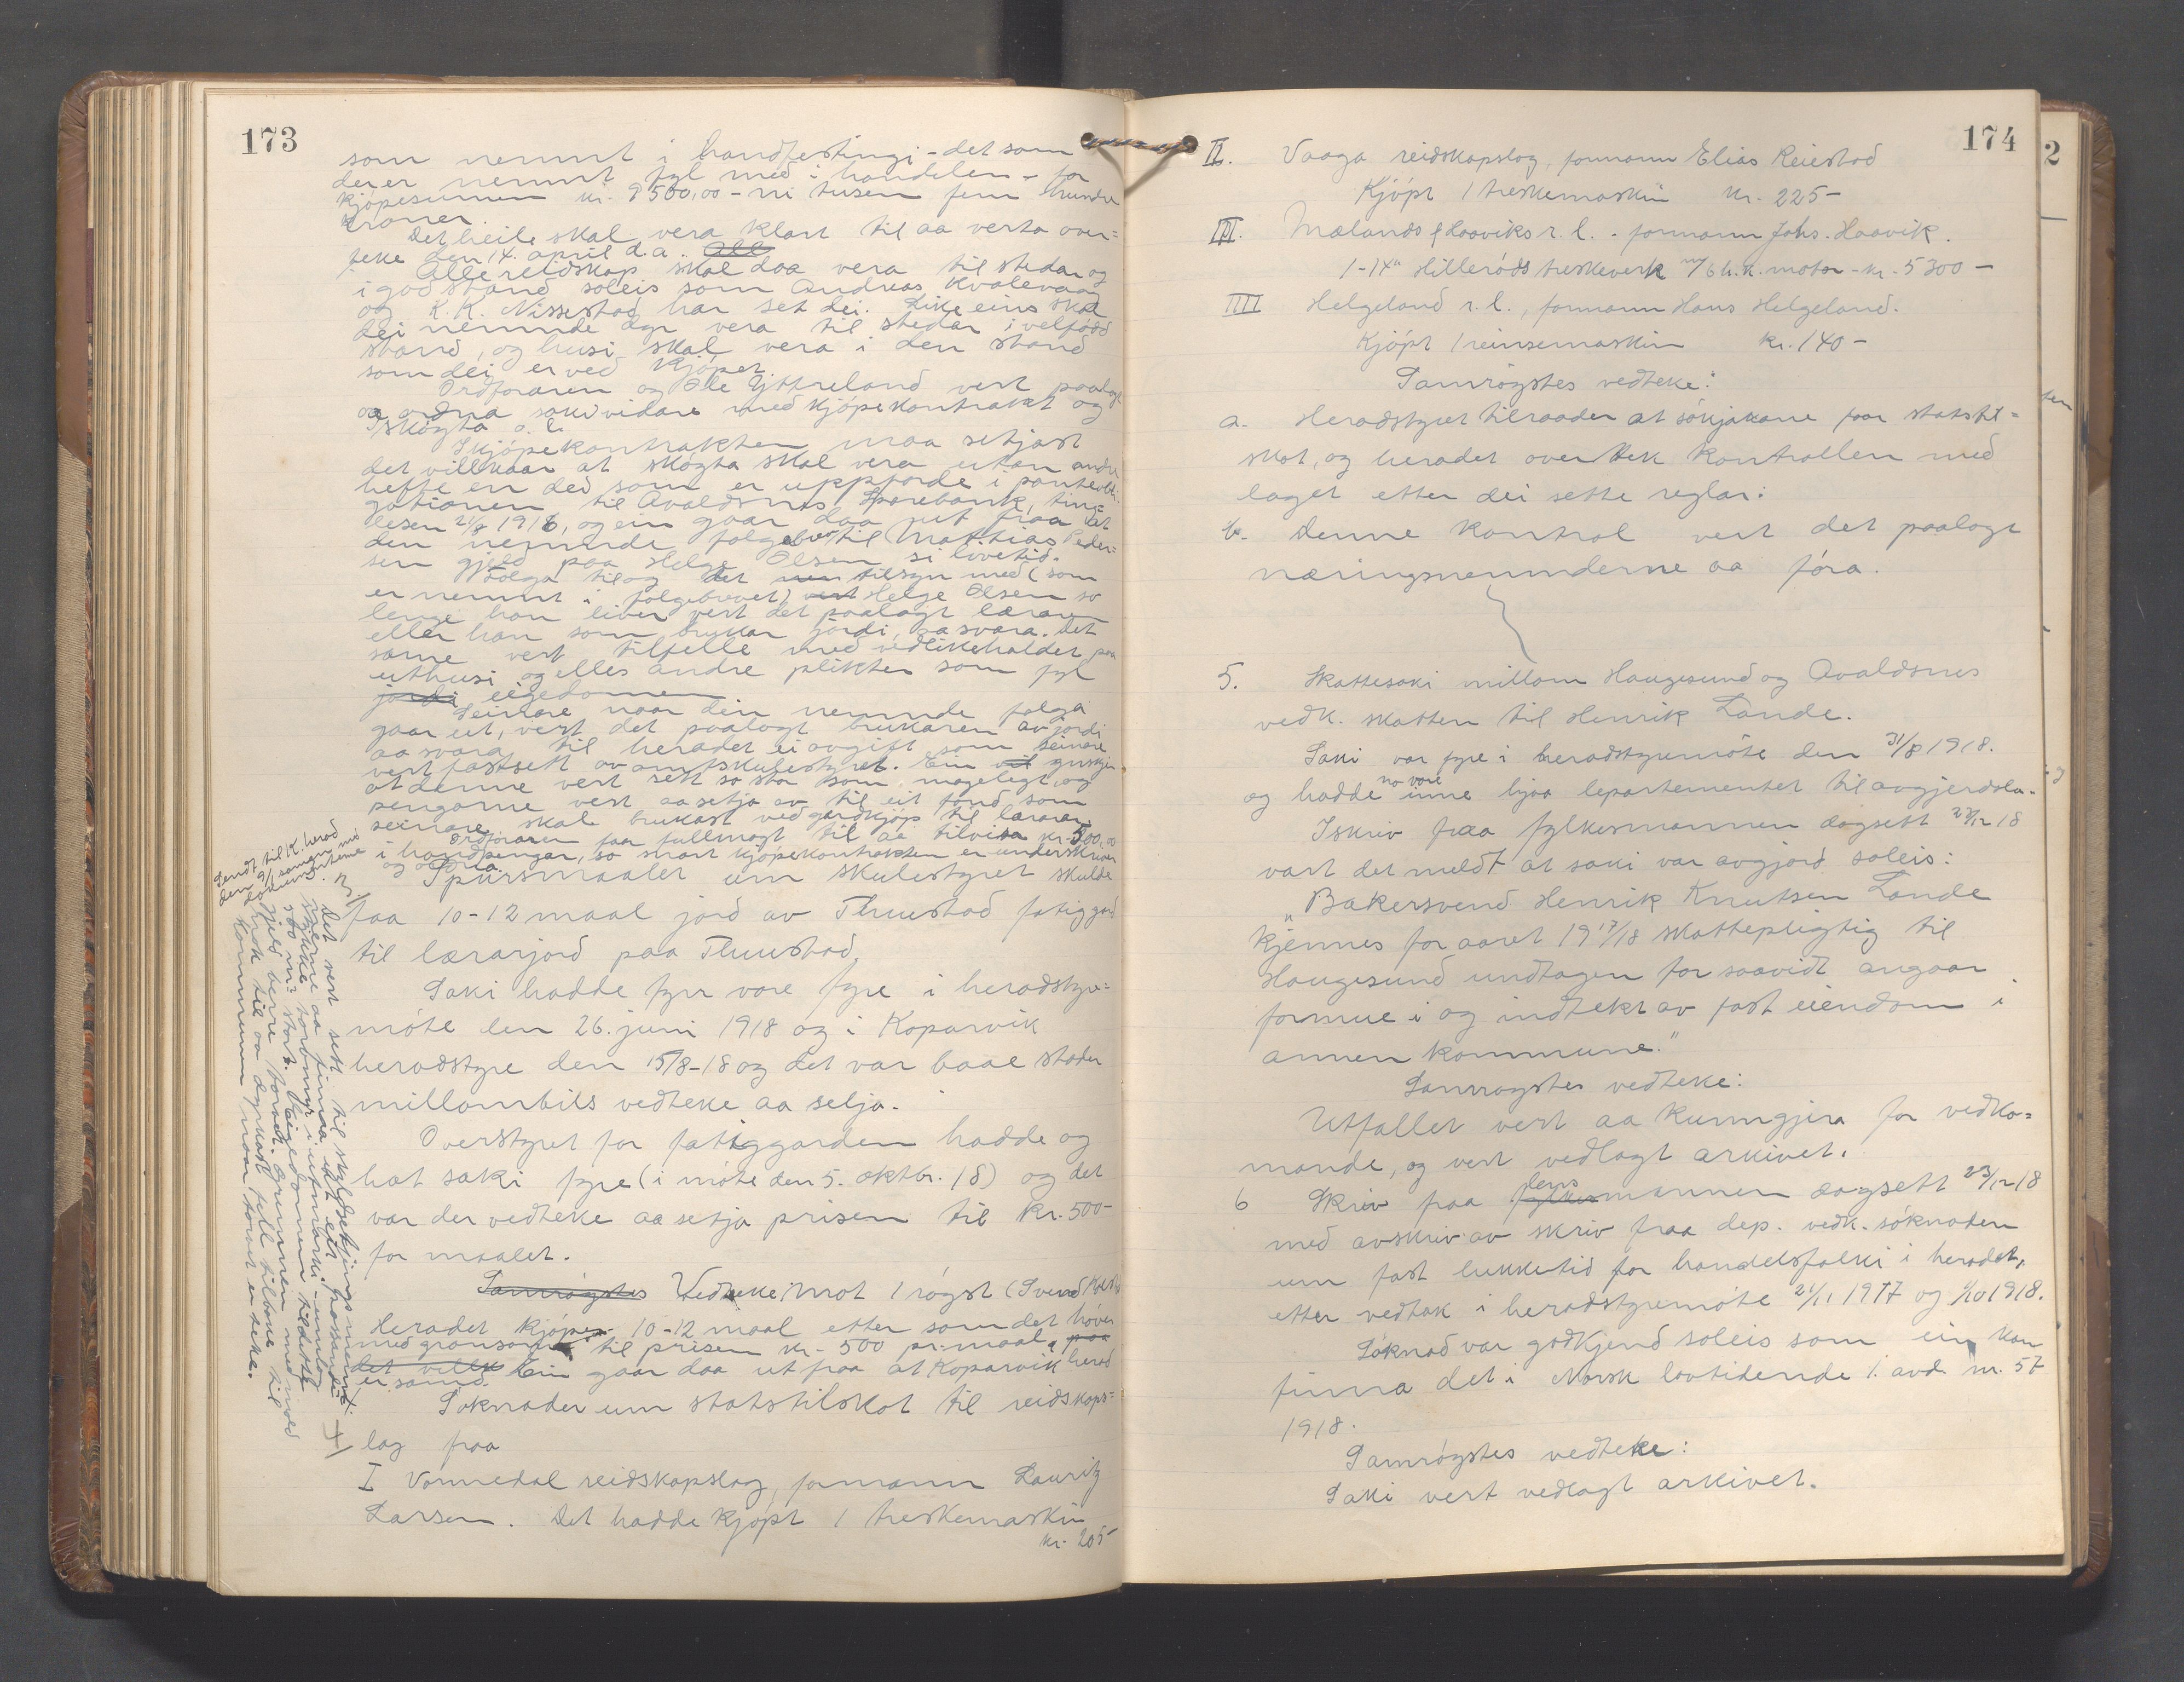 173
som nemnt i handfestingi - det som
der er nemnt fyl med i handelen - for
kjöpesumen kr. 9500,00 - ni tusen fem hundre
kroner.
Det heile skal vera klart til aa verta over=
teke den 14. april d.a. All
Alle reidskap skal daa vera til stedar og
i god stand soleis som Andreas Kvalevaag
og K. K. Nissestad har set dei. Like eins skal
dei nemnde dyr vera til stedar i velfödd
stand, og husi skal vera i den stand
som dei er ved kjöpet.
Ordföraren og Ole Yttreland vert paalagt
aa ordna saki vidare med kjöpekontrakt og
sköyta o. l.
I kjöpekontrakten maa setjast
det villkaar at sköyta skal vera utan andre
hefte en ded som er uppförde i panteobli-
gationen til Avaldsnes Sparebank, ting=
lesen 21/8 1916, og ein gaar daa ut fraa at
den nemnde folgebrev til Mattias Peder=
sen gjeld paa Helge Olsen si livetid.
Folga til og det tilsyn med (som
er nemnt i folgebrevet) vert Helge Olsen so
lenge han liver vert det paalagt læraren
eller han som brukar jordi, aa svara. Det
same vert tilfelle med vedlikehaldet paa
uthusi og elles andre plikter som fyl
jordi eigedomen
Seinare naar den nemnde folga
gaar ut, vert det paalagt brukaren av jordi
aa svara til heradet ei avgift som seinare
vert fastsett av amtskulestyret. Ein vil ynskja
at denne vert sett so stor som mogelegt, og
pengarne vert aa setja av til eit fond som
seinare skal brukast ved gardkjöp til lærarar.
Ordföraren faar fullmagt til aa tilvisa kr. 500,00
i handpengar, so snart kjöpekontrakten er underskriven
og ordna.
3. Spursmaalet um skulestyret skulde
faa 10-12 maal jord av Tuustad fatiggard
til lærarjord paa Tuustad.
Saki hadde fyrr vore fyre i heradstyre=
möte den 26. juni 1918 og i Koparvik
heradstyre den 15/8-18 og det var baae stader
millombils vedteke aa selja.
Overstyret for fatiggarden hadde og
hat saki fyre (i möte den 5. oktbr. 18) og det
var der vedteke aa setja prisen til kr. 500-
for maalet.
Samrögstes Vedteke mot 1 rögst (Svend
Heradet kjöper 10-12 maal etter som det höver
med gransom til prisen kr. 500 pr. maal, paa
det villk Ein gaar daa ut fraa at Koparvik herad
er samd.
4/ Söknader um statstilskot til reidskaps=
lag fraa
I Vormedal reidskapslag, formann Lauritz
Larsen. Det hadde kjöpt 1 treskemaskin
kr. 205-
Sendt til K. herad
den 9/1 saman med
dokumenterne
Det vert sett til skyldsetjingsmenn
menne aa finna ut eit passande
stykke torvmyr i utmarki - umlag
so stort. Eigedomen tildeltst
gjeld berre torvet. Grunnen med
bruk til aa dyrkast fell tilbake til
kommunen naar torvet er teke.
174
II. Vaaga reidskapslag, formann Elias Reiestad
Kjöpt 1 treskemaskin kr. 225-
III. Mælands & Haaviks r. l. - formann Johs. Haavik.
1-14" Hilleröds treskeverk m/6 h.k. motor - kr. 5300-
IIII Helgeland r. l., formann Hans Helgeland.
Kjöpt 1 reinsemaskin kr. 140-
Samrögstes vedteke:
a. Heradstyret tilraader at sökjarane faar statstil=
skot, og heradet overtek kontrollen med
laget etter dei sette reglar:
b. Denne kontrol vert det paalagt
næringsnemnderne aa föra.
5. Skattesaki millom Haugesund og Avaldsnes
vedk. skatten til Henrik Lande.
Saki var fyre i heradstyremöte den 31/8 1918.
og hadde no vore inne hjaa departementet til avgjerdsla.
I skriv fraa fylkesmannen dagsett 23/12 18
vart det meldt at saki var avgjord soleis:
"Bakersvend Henrik Knutsen Lande
kjennes for aaret 1917/18 skattepligtig til
Haugesund undtagen for saavidt angaar
formue i og indtekt av fast eiendom i
annen kommune."
Samrögstes vedteke:
Utfallet vert aa kunngjera for vedko=
mande, og vert vedlagt arkivet.
6 Skriv fraa fylkes lensmannen dagsett 23/12 18
med avskriv av skriv fraa dep. vedk. söknaden
um fast lukketid for handelsfolki i heradet,
etter vedtak i heradstyremöte 21/11 1917 og 1/10 1918.
Söknad var godkjend soleis som ein kan
finna det i Norsk lovtidende 1. avd. nr. 57
1918.
Samrögstes vedteke:
Saki vert vedlagt arkivet.
2